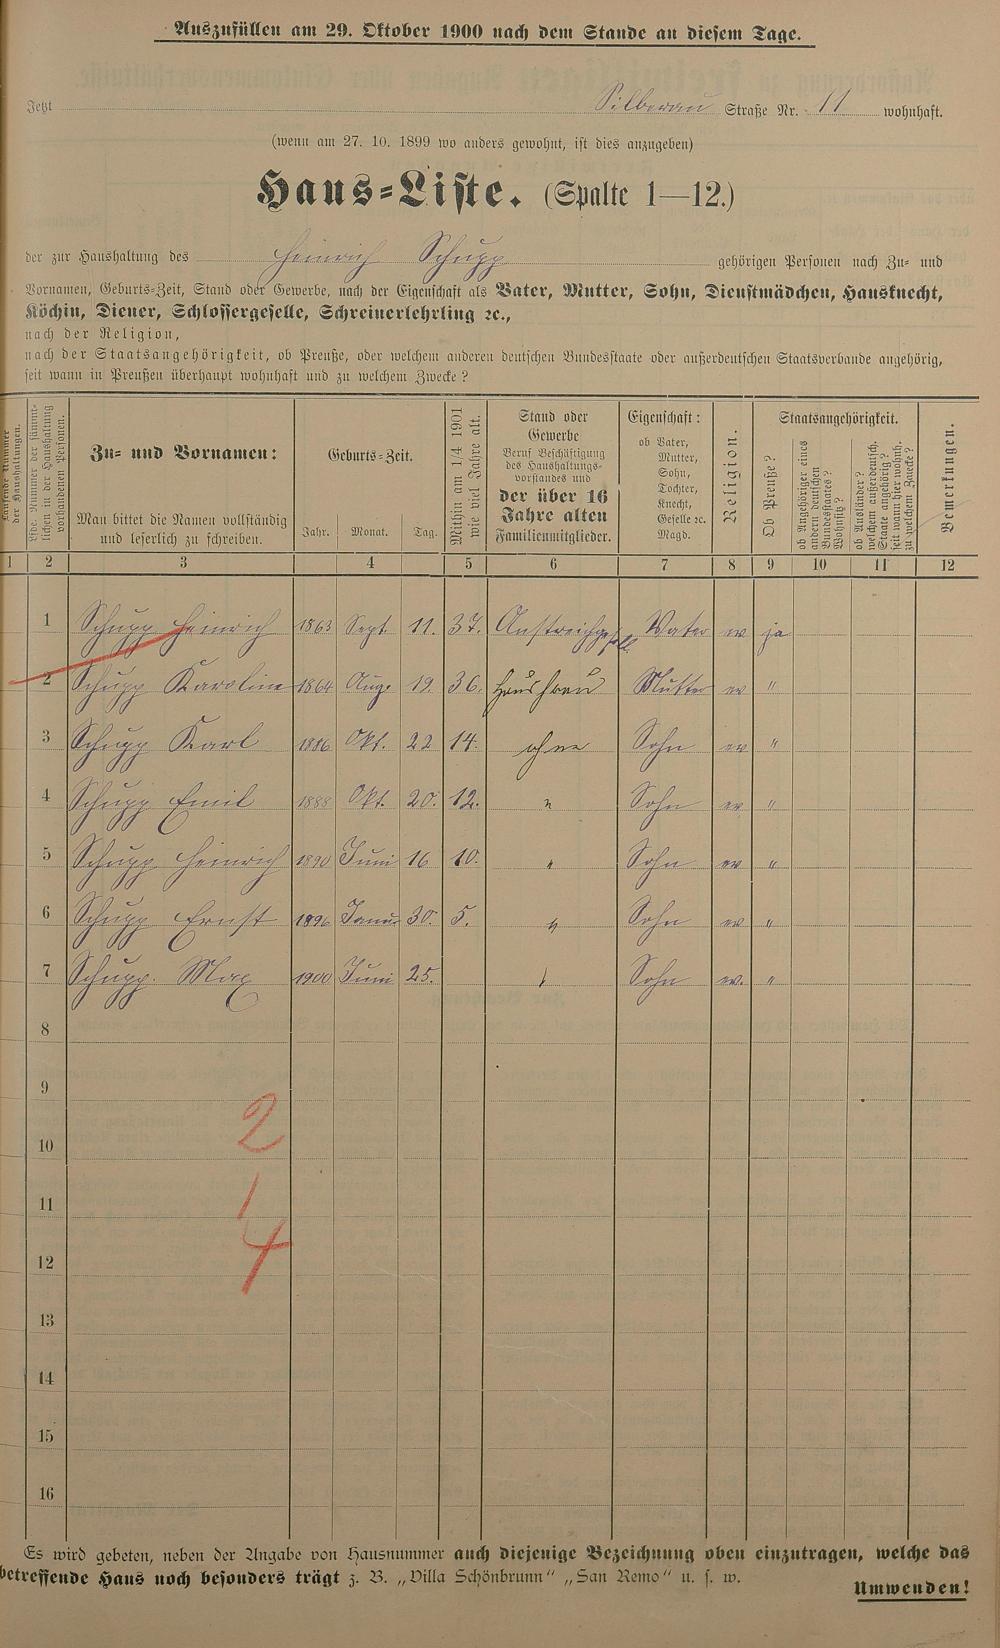 Auszufüllen am 29. Oktober 1900 nach dem Stande an diesem Tage.
Jetzt Silberau Straße Nr. 11 wohnhaft.
(wenn am 27. 10. 1899 wo anders gewohnt, ist dies anzugeben)
Haus-Liste. (Spalte 1—12.)
der zur Haushaltung des Heinrich Schupp gehörigen Personen nach Zu- und
Vornamen, Geburts-Zeit, Stand oder Gewerbe, nach der Eigenschaft als Vater, Mutter, Sohn, Dienstmädchen, Hausknecht,
Köchin, Diener, Schlossergeselle, Schreinerlehrling ꝛc.,
nach der Religion,
nach der Staatsangehörigkeit, ob Preuße, oder welchem anderen deutschen Bundesstaate oder außerdeutschen Staatsverbande angehörig,
seit wann in Preußen überhaupt wohnhaft und zu welchem Zwecke?
Laufende Nummer
der Haushaltungen.
Lfde. Nummer der sämmt-
lichen in der Haushaltung
vorhandenen Personen.
Zu- und Vornamen:
Man bittet die Namen vollständig
und leserlich zu schreiben.
Geburts-Zeit.
Jahr. Monat. Tag.
Mithin am 1/4 1901
wie viel Jahre alt.
Stand oder
Gewerbe
Beruf Beschäftigung
des Haushaltungs-
vorstandes und
der über 16
Jahre alten
Familienmitglieder.
Eigenschaft:
ob Vater,
Mutter,
Sohn,
Tochter,
Knecht,
Geselle ꝛc.
Magd.
Religion.
Staatsangehörigkeit.
Ob Preuße?
ob Angehöriger eines
andern deutschen
Bundesstaates?
Welches?
ob Ausländer?
welchem außerdeutsch.
Staate angehörig?
seit wann hier wohnh.
zu welchem Zwecke?
Bemerkungen.
1 2 3 4 5 6 7 8 9 10 11 12
1 Schupp Heinrich 1863 Sept. 11. 37. Anstreichgesell. Vater ev ja
2 Schupp Karoline 1864 Aug. 19. 36. Hausfrau Mutter ev "
3 Schupp Karl 1886 Okt. 22 14. ohne Sohn ev "
4 Schupp Emil 1888 Okt. 20. 12. " Sohn ev "
5 Schupp Heinrich 1890 Juni 16 10. " Sohn ev "
6 Schupp Ernst 1896 Janur 30. 5. " Sohn ev "
7 Schupp. Max 1900 Juni 25. " Sohn ev. "
8
9
2
10
11
1
12
4
13
14
15
16
Es wird gebeten, neben der Angabe von Hausnummer auch diejenige Bezeichnung oben einzutragen, welche das
betreffende Haus noch besonders trägt z. B. „Villa Schönbrunn“ „San Remo“ u. s. w.
Umwenden!